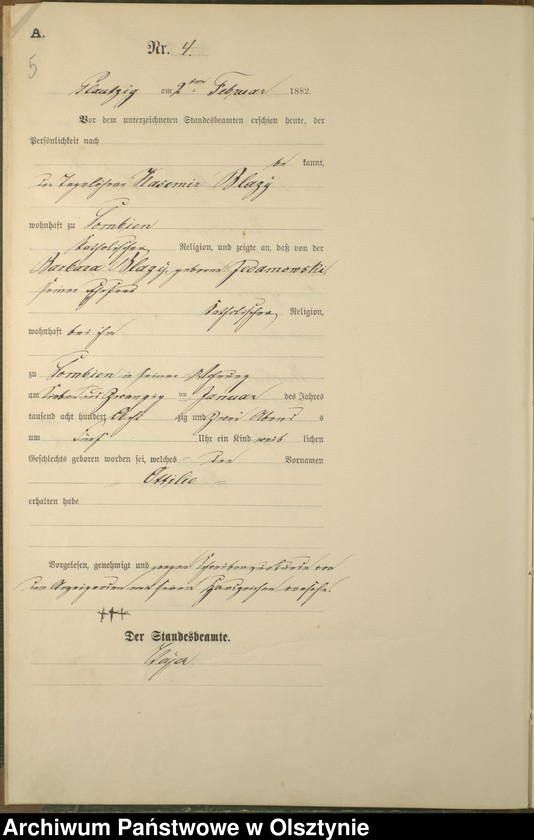 A.
5
Nr. 4.
Plautzig am 2ten Februar 1882.
Vor dem unterzeichneten Standesbeamten erschien heute, der
Persönlichkeit nach
be kannt,
der Tagelöhner Kasemir Blazy
wohnhaft zu Tombien
katholischer Religion, und zeigte an, daß von der
Barbara Blazy, geborene
seiner Ehefrau
katholischer Religion,
wohnhaft bei ihm
zu Tombien in seiner Wohnung
am sieben und zwanzig ten Januar des Jahres
tausend acht hundert acht zig und zwei Abend s
um fünf Uhr ein Kind weib lichen
Geschlechts geboren worden sei, welches den Vornamen
Ottilie
erhalten habe
Vorgelesen, genehmigt und wegen Schreibensunkunde von
dem Anzeigenden mit seinem Handzeichen versehn.
+++
Der Standesbeamte.
Archiwum Państwowe w Olsztynie